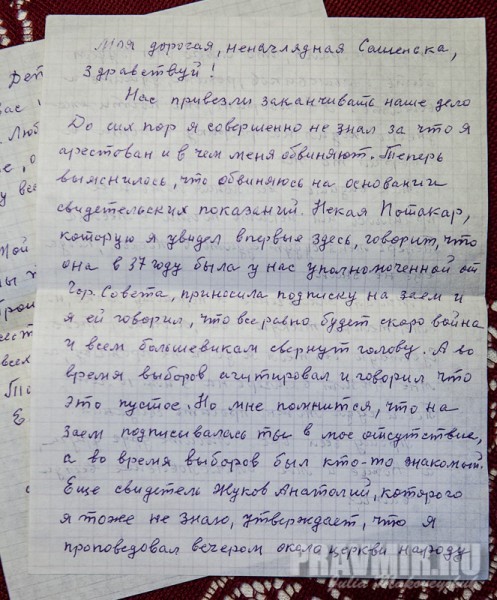 Моя дорогая, ненаглядная Сашенька,
здравствуй!
Нас привезли заканчивать наше дело
До сих пор я совершенно не знал за что я
арестован и в чем меня обвиняют. Теперь
выяснилось, что обвиняюсь на основании
свидетельских показаний. Некая Потакар,
которую я увидел впервые здесь, говорит, что
она в 37 году была у нас уполномоченной от
Гор. Совета, приносила подписку на заем и
я ей говорил, что всеравно будет скоро война
и всем большевикам свернут голову. А во
время выборов агитировал и говорил что
это пустое. Но мне помнится, что на
заем подписывалась ты в мое отсутствие,
а во время выборов был кто-то знакомый.
Еще свидетель Жуков Анатолий, которого
я тоже не знаю, утверждает, что я
проповедовал вечером около церкви народу
PRAVMIR.RU